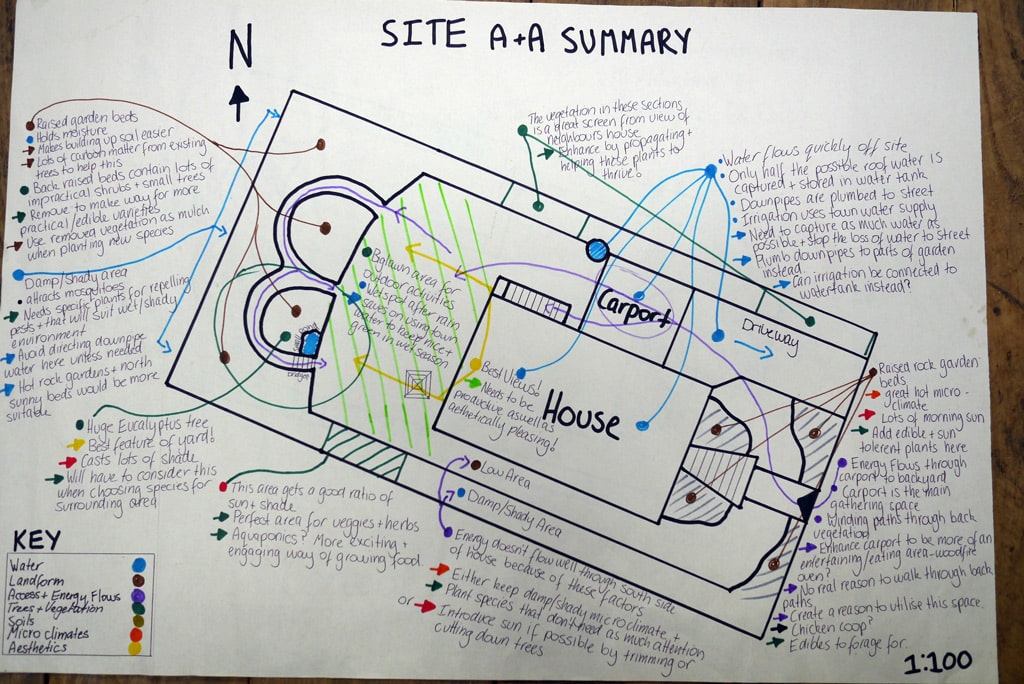 SITE A+A SUMMARY
N
Raised garden beds
Holds moisture
Makes building up soil easier
Lots of carbon matter from existing
trees to help this
Back raised beds contain lots of
impractical shrubs + small trees
Remove to make way for more
practical/edible varieties
Use removed vegetation as mulch
when planting new species
Damp/Shady area
attracts mosquitoes
Needs specific plants for repelling
pests + that will suit wet/shady
environment
Avoid directing downpipe
water here unless needed
Hot rock gardens + north
sunny beds would be more
suitable
The vegetation in these sections
is a great screen from view of
neighbours house
Enhance by propagating +
helping these plants to
thrive!
Water flows quickly off site
Only half the possible roof water is
captured + stored in water tank
Downpipes are plumbed to street
Irrigation uses town water supply
Need to capture as much water as
possible + stop the loss of water to street
Plumb downpipes to parts of garden
instead.
Can irrigation be connected to
watertank instead?
Big lawn area for
outdoor activities
Wet spot after rain
Saves on using town
water to keep nice +
green in wet season
Pond
Bridge
Carport
Driveway
House
Best Views!
Needs to be
productive aswell as
aesthetically pleasing!
Raised rock garden
beds
great hot micro-
climate
Lots of morning sun
Add edible + sun
tolerent plants here
Energy Flows through
carport to backyard
Carport is the main
gathering space
Winding paths through back
vegetation
Enhance carport to be more of an
entertaining/eating area-woodfire
oven?
No real reason to walk through back
paths
Create a reason to utilise this space.
Chicken coop?
Edibles to forage for.
Huge Eucalyptus tree
Best feature of yard!
Casts lots of shade
Will have to consider this
when choosing species for
surrounding area
This area gets a good ratio of
sun + shade
Perfect area for veggies + herbs
Aquaponics? More exciting +
engaging way of growing food.
Low Area
Damp/Shady Area
Energy doesn't flow well through south side
of house because of these factors
Either keep damp/shady microclimate +
Plant species that don't need as much attention
or Introduce sun if possible by trimming or
cutting down trees
KEY
Water
Landform
Access + Energy Flows
Trees + Vegetation
Soils
Micro climates
Aesthetics
1:100